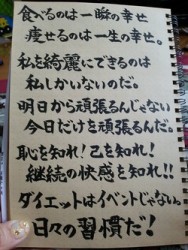 食べるのは一瞬の幸せ
痩せるのは一生の幸せ。
私を綺麗にできるのは
私しかいないのだ。
明日から頑張るんじゃない
今日だけを頑張るんだ。
恥を知れ!己を知れ!
継続の快感を知れ!!
ダイエットはイベントじゃない。
日々の習慣だ!